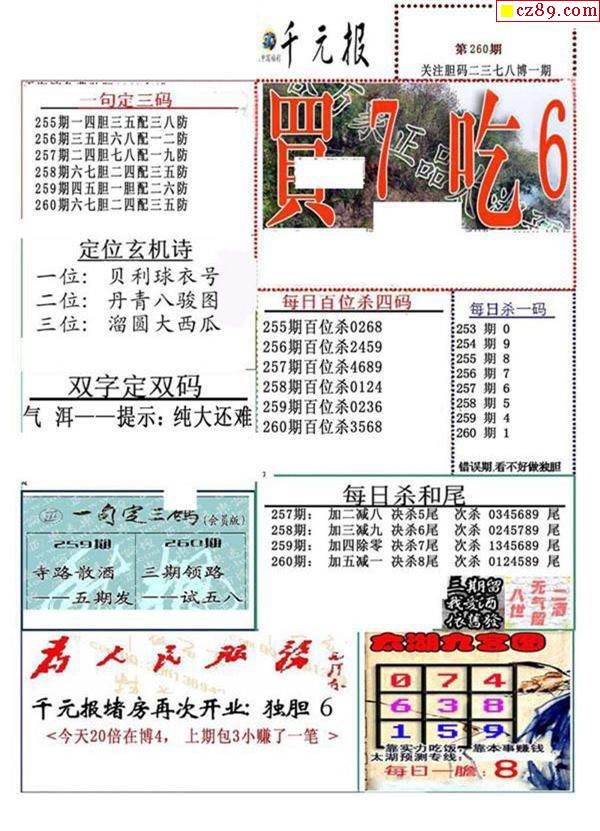 cz89.com
千元报
第260期
关注胆码二三七八博一期
一句定三码
255期一四胆三五配三八防
256期三五胆六八配一二防
257期二四胆七八配一九防
258期六七胆二四配三五防
259期四五胆一胆配二六防
260期六七胆二四配三五防
買7吃6
定位玄机诗
一位: 贝利球衣号
二位: 丹青八骏图
三位: 溜圆大西瓜
每日百位杀四码
255期百位杀0268
256期百位杀2459
257期百位杀4689
258期百位杀0124
259期百位杀0236
260期百位杀3568
每日杀一码
253 期 0
254 期 9
255 期 8
256 期 7
257 期 6
258 期 5
259 期 4
260 期 1
错误期,看不好做独胆
双字定双码
气 洱——提示: 纯大还难
一句定三码(会员版)
259期
寺路散酒
——五期发
260期
三期领路
——试五八
每日杀和尾
257期: 加二减八 决杀5尾 次杀 0345689 尾
258期: 加三减九 决杀6尾 次杀 0245789 尾
259期: 加四除零 决杀7尾 次杀 1345689 尾
260期: 加五减一 决杀8尾 次杀 0124589 尾
三期留
元气留
八世
二酒
为人民服务
千元报堵房再次开业: 独胆 6
<今天20倍在博4, 上期包3小赚了一笔>
太湖九宫图
0 7 4
6 3 8
1 5 9
靠实力吃饭, 靠本事赚钱
太湖预测专线:
每日一胆: 8